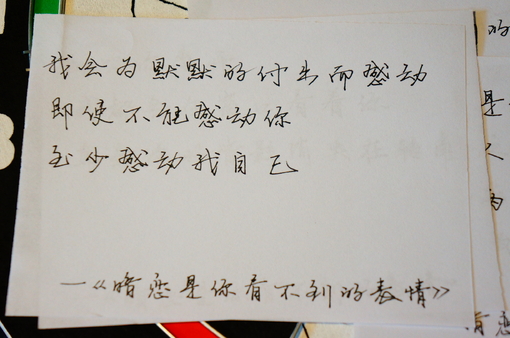 我会为默默的付出而感动
即使不能感动你
至少感动我自己
—《暗恋是你看不到的表情》
的
是
人
为
有恋